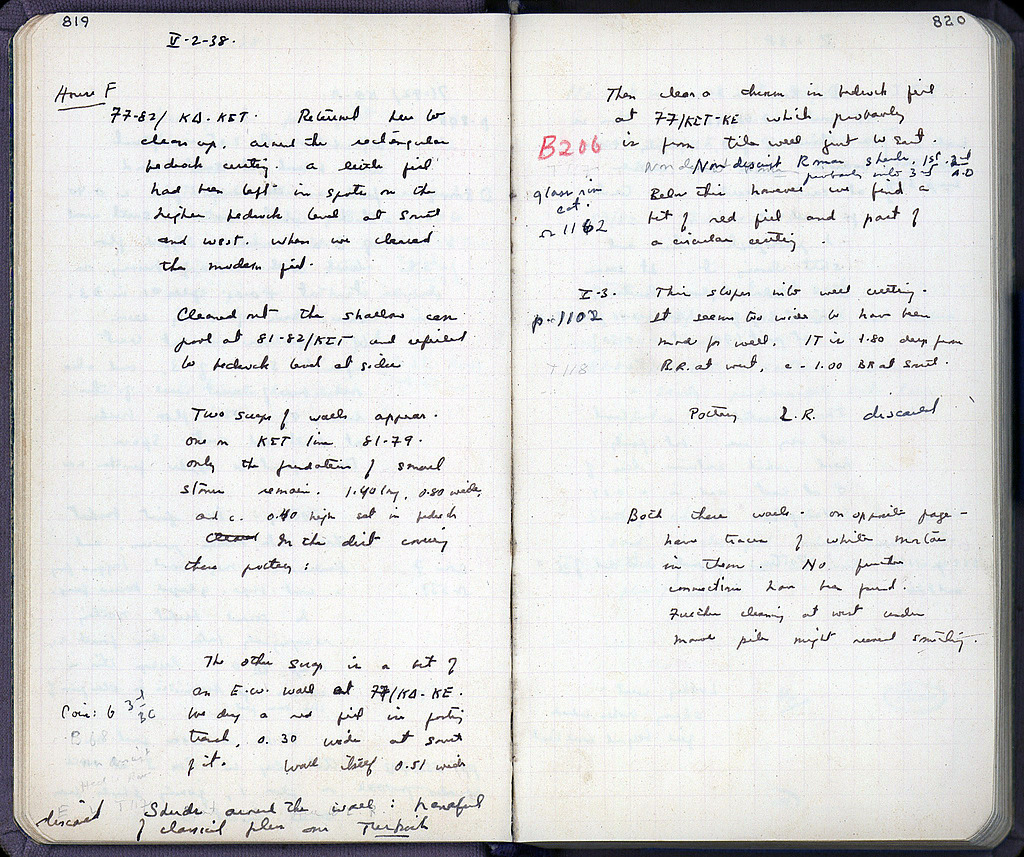 819
V-2-38.
House F
77-82/ KΔ-KET. Returned here to
clean up, around the rectangular
bedrock cutting. a little fill
had been left in spots on the
higher bedrock level at South
and west. When we cleared
the modern fill.
Cleared out the shallow
pool at 81-82/KET and
to bedrock level at sides
Two scraps of walls appear.
one on KET line 81-79.
only the foundation of small
stones remain. 1.40 long, 0.80 wide,
and c. 0.40 high set in bedrock
In the dirt covering
these pottery:
The other scrap is a bit of
an E.W. wall at 77/KΔ-KE.
Coin: 6 3rd BC
We dug a red fill in footing
trench, 0.30 wide at South
B 68
of it. Wall itself 0.51 wide
discard
Sherds around the wall: handful
of classical plus one Turkish
820
Then clear a chasm in bedrock fill
at 77/KET-KE which probably
B206
is from tile well just to East.
Nondescript Roman sherds, 1st-2nd
probably into 3rd A.D
glass rim
cat.
Ω 1162
Below this however we find a
bit of red fill and part of
a circular cutting.
X-3. This slopes into well cutting.
p.1102
It seems too wide to have been
made for well. IT is 1.80 deep from
T 118
B.R. at west, c - 1.00 BR at South.
Pottery L.R. discard
Both these walls - on opposite page -
have traces of white mortar
in them. No further
connections have been found.
Further clearing at west under
marble piles might reveal something.